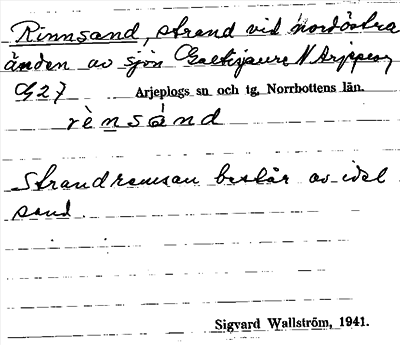 Rinnsand, strand vid nordöstra
änden av sjön N Arjeplog
G27 Arjeplogs sn och tg, Norrbottens län.
rènsánd
Strandremsan består av idel
sand.
Sigvard Wallström, 1941.